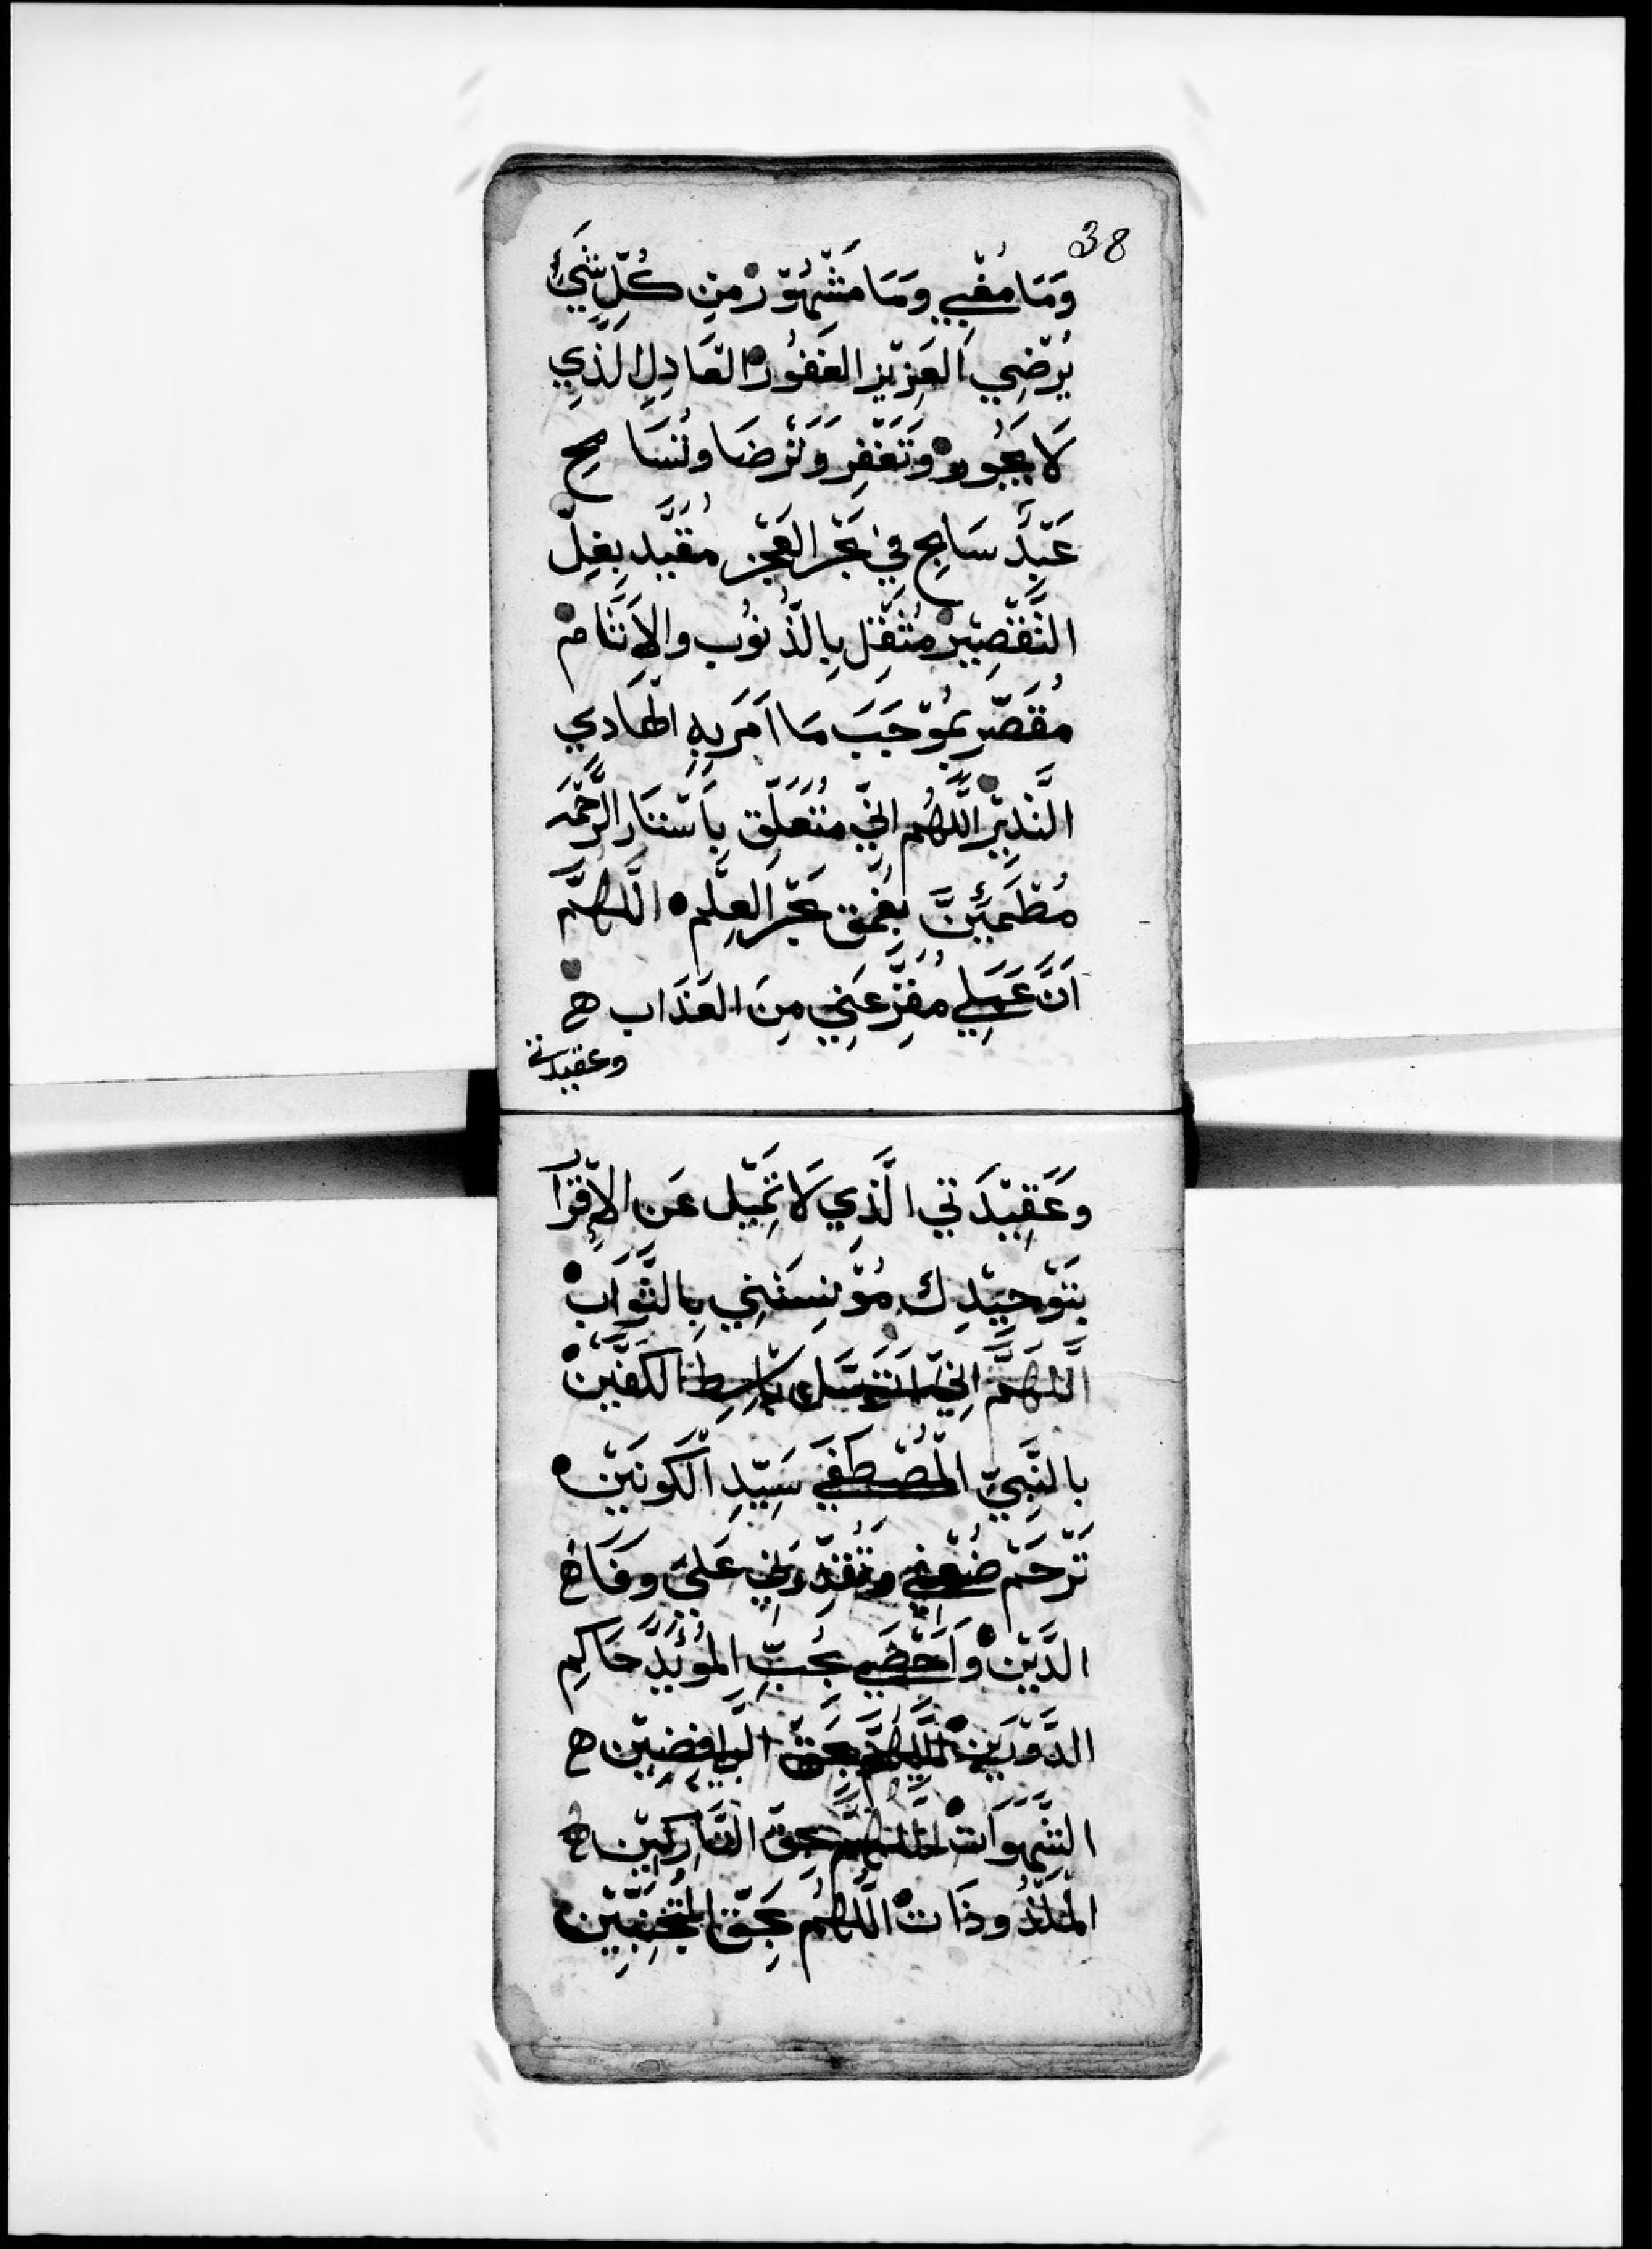 38
وَمَا مُفْيي وَمَا مَشْهُوْرْ مِنْ كُلِّ شَيْءٍ
يُرْضِي العَزِيْز الغَفُورْ العَادِلِ الَّذِي
لَا يَجُورْ وَتَغْفِر وَتَرْضَا وتُسَا مِح
عَبْدَ سَابِح فِي بَحْر العَجْز مُقَيَّد بِغِلّ
التَّقْصِيْرْ مُثْقَل بِالذُّنُوْب والاَثَام
مُقَصِّر بمُوْجَبَ مَا اَمَر بِهِ الهَادِي
النَّذِيْرْ اللَّهُم اِنِّي مُتَعَلِّق بِاَسْتَار الرَّحْمَه
مُطْمَئِنَّ بِعُمْق بَحْر العِلْم ه اللَّهُمَّ
اَنَّ عَمَلِي مُفَزِّعَنِي مِنَ العَذَاب ه
وعقيدتي
وعَقِيْدَتي الَّذِي لَا تَمِيْل عَن الاِقْرَا
بتَوْحِيْدِك مُوْنِسَتْنِي بِالثَّوَابْ
اللَّهُمَّ اِنِّي اَتَوَسَّل بَاسِطِ الكَفَّيْنْ
بالنَّبِيّ المُصْطَفَي سَيِّدِ الكَونَيْنْ ه
تَرْحَم ضُعْفِي وتُقَدِّرَنِي عَلَيَّ وَفَاء
الدَّيْنْ وَاَحْضَي بحُبِّ المُؤَيَّد حَاكِم
الدَّوْرَينْ اللَّهُمَّ بحَقّ الرَّافِضِيْن ه
الشَّهَوَاتْ اللَّهُمَّ بحَقّ التَّارِكِيْن ه
المَلْذُوذَاتْ اللَّهُم بحَقّ المُتَجَنِّبِيْن